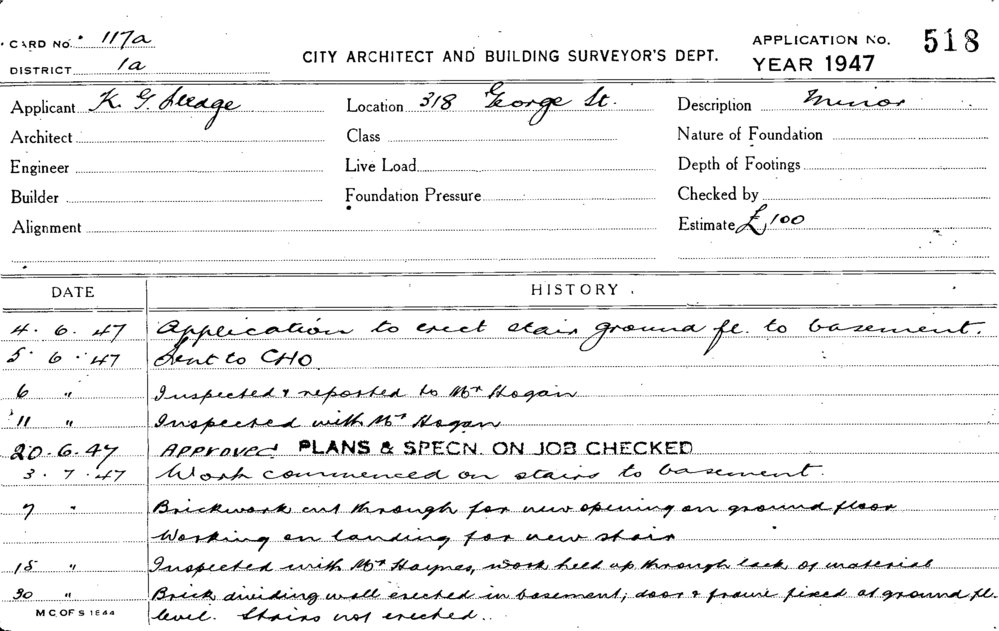 CARD No. 117a
DISTRICT 1a
CITY ARCHITECT AND BUILDING SURVEYOR'S DEPT.
APPLICATION No. 518
YEAR 1947
Applicant K. G. Sledge
Location 318 George St.
Description Minor
Architect
Class
Nature of Foundation
Engineer
Live Load
Depth of Footings
Builder
Foundation Pressure
Checked by
Alignment
Estimate £100
DATE HISTORY
4.6.47 Application to erect stair ground fl. to basement.
5.6.47 Sent to CHO
6 " Inspected & reported to Mr Hogan
11 " Inspected with Mr Hogan
20.6.47 APPROVED PLANS & SPECN. ON JOB CHECKED
3.7.47 Work commenced on stairs to basement.
7 " Brickwork cut through for new opening on ground floor
Working on landing for new stair
18 " Inspected with Mr Haynes, work held up through lack of material
30 " Brick dividing wall erected in basement; door & frame fixed at ground fl.
level. Stairs not erected.
M C OF S 1844